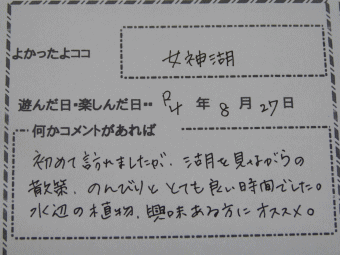 よかったよココ
女神湖
遊んだ日・楽しんだ日・・ R4 年 8 月 27 日
何かコメントがあれば
初めて訪れましたが、湖を見ながらの
散策、のんびりと とても良い時間でした。
水辺の植物、興味ある方にオススメ。